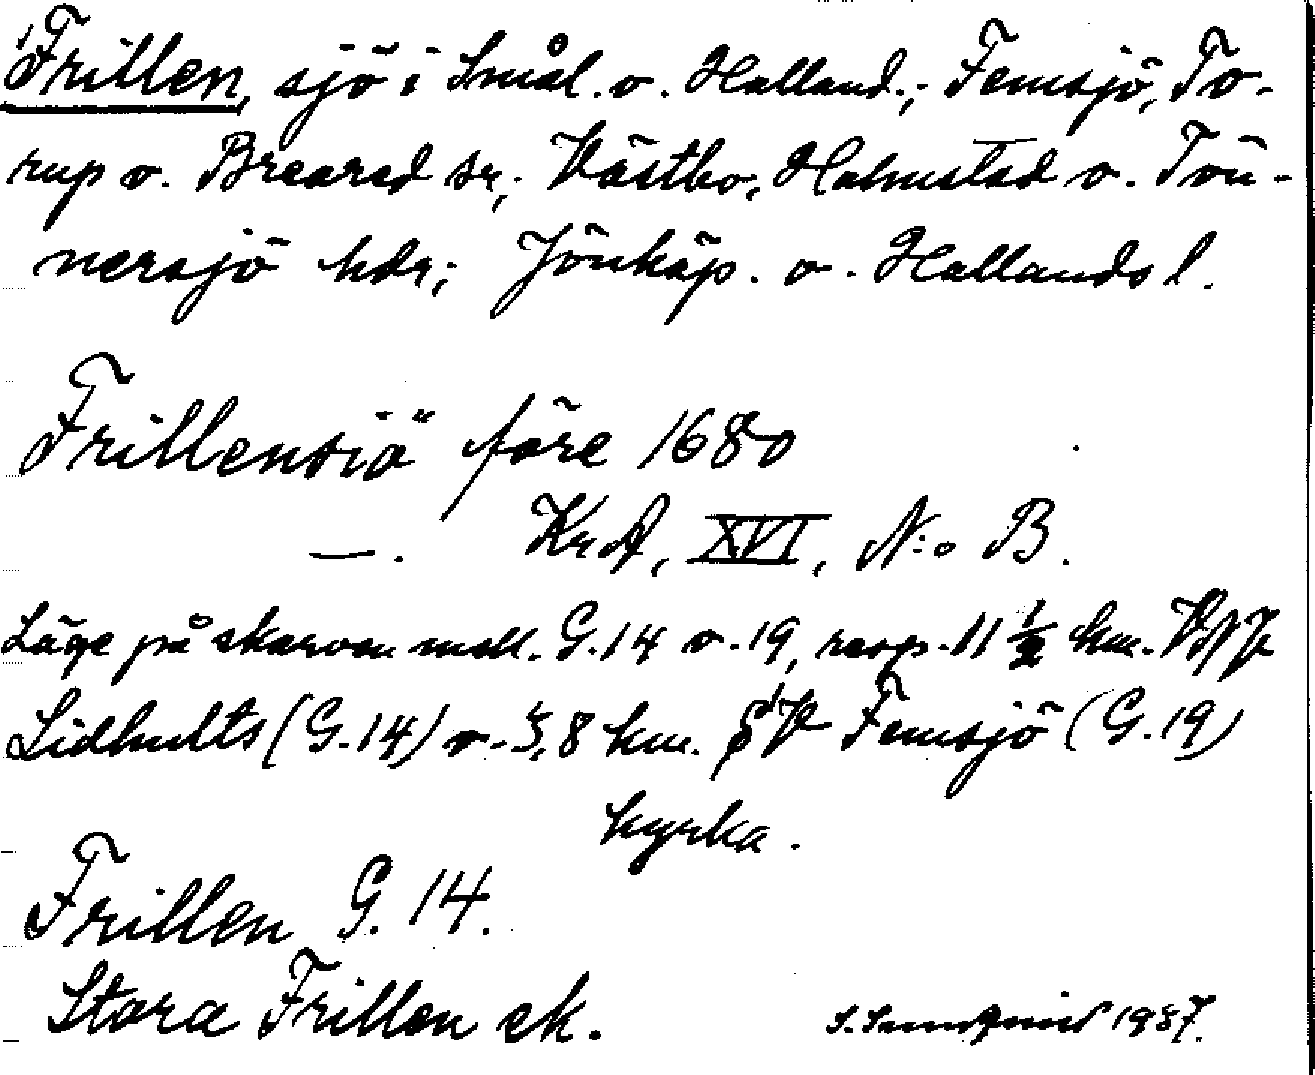 Frillen, sjö i Smål. o. Halland.; Femsjö, To-
rup o. Breared sr; Västbo, Halmstad o. Tön-
nersjö hdr; Jönköp. o. Hallands l.
Frillensiö före 1680
—. KrA, XVI, N:o B.
Läge på skarven mell. G.14 o. 19, resp. 11 ½ km.
Lidhults (G.14) o. 5,8 km. Femsjö (G.19)
kyrka.
Frillen G. 14.
Stora Frillen ek.
1937.